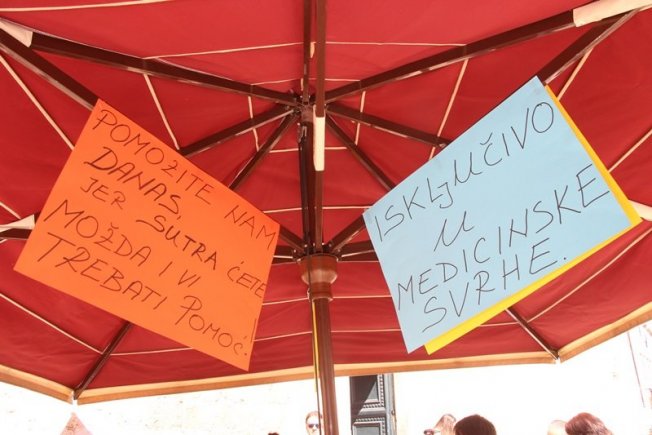 POMOŽITE NAM
DANAS,
JER SUTRA ĆETE
MOŽDA I VI
TREBATI POMOĆ!
ISKLJUČIVO
U
MEDICINSKE
SVRHE.